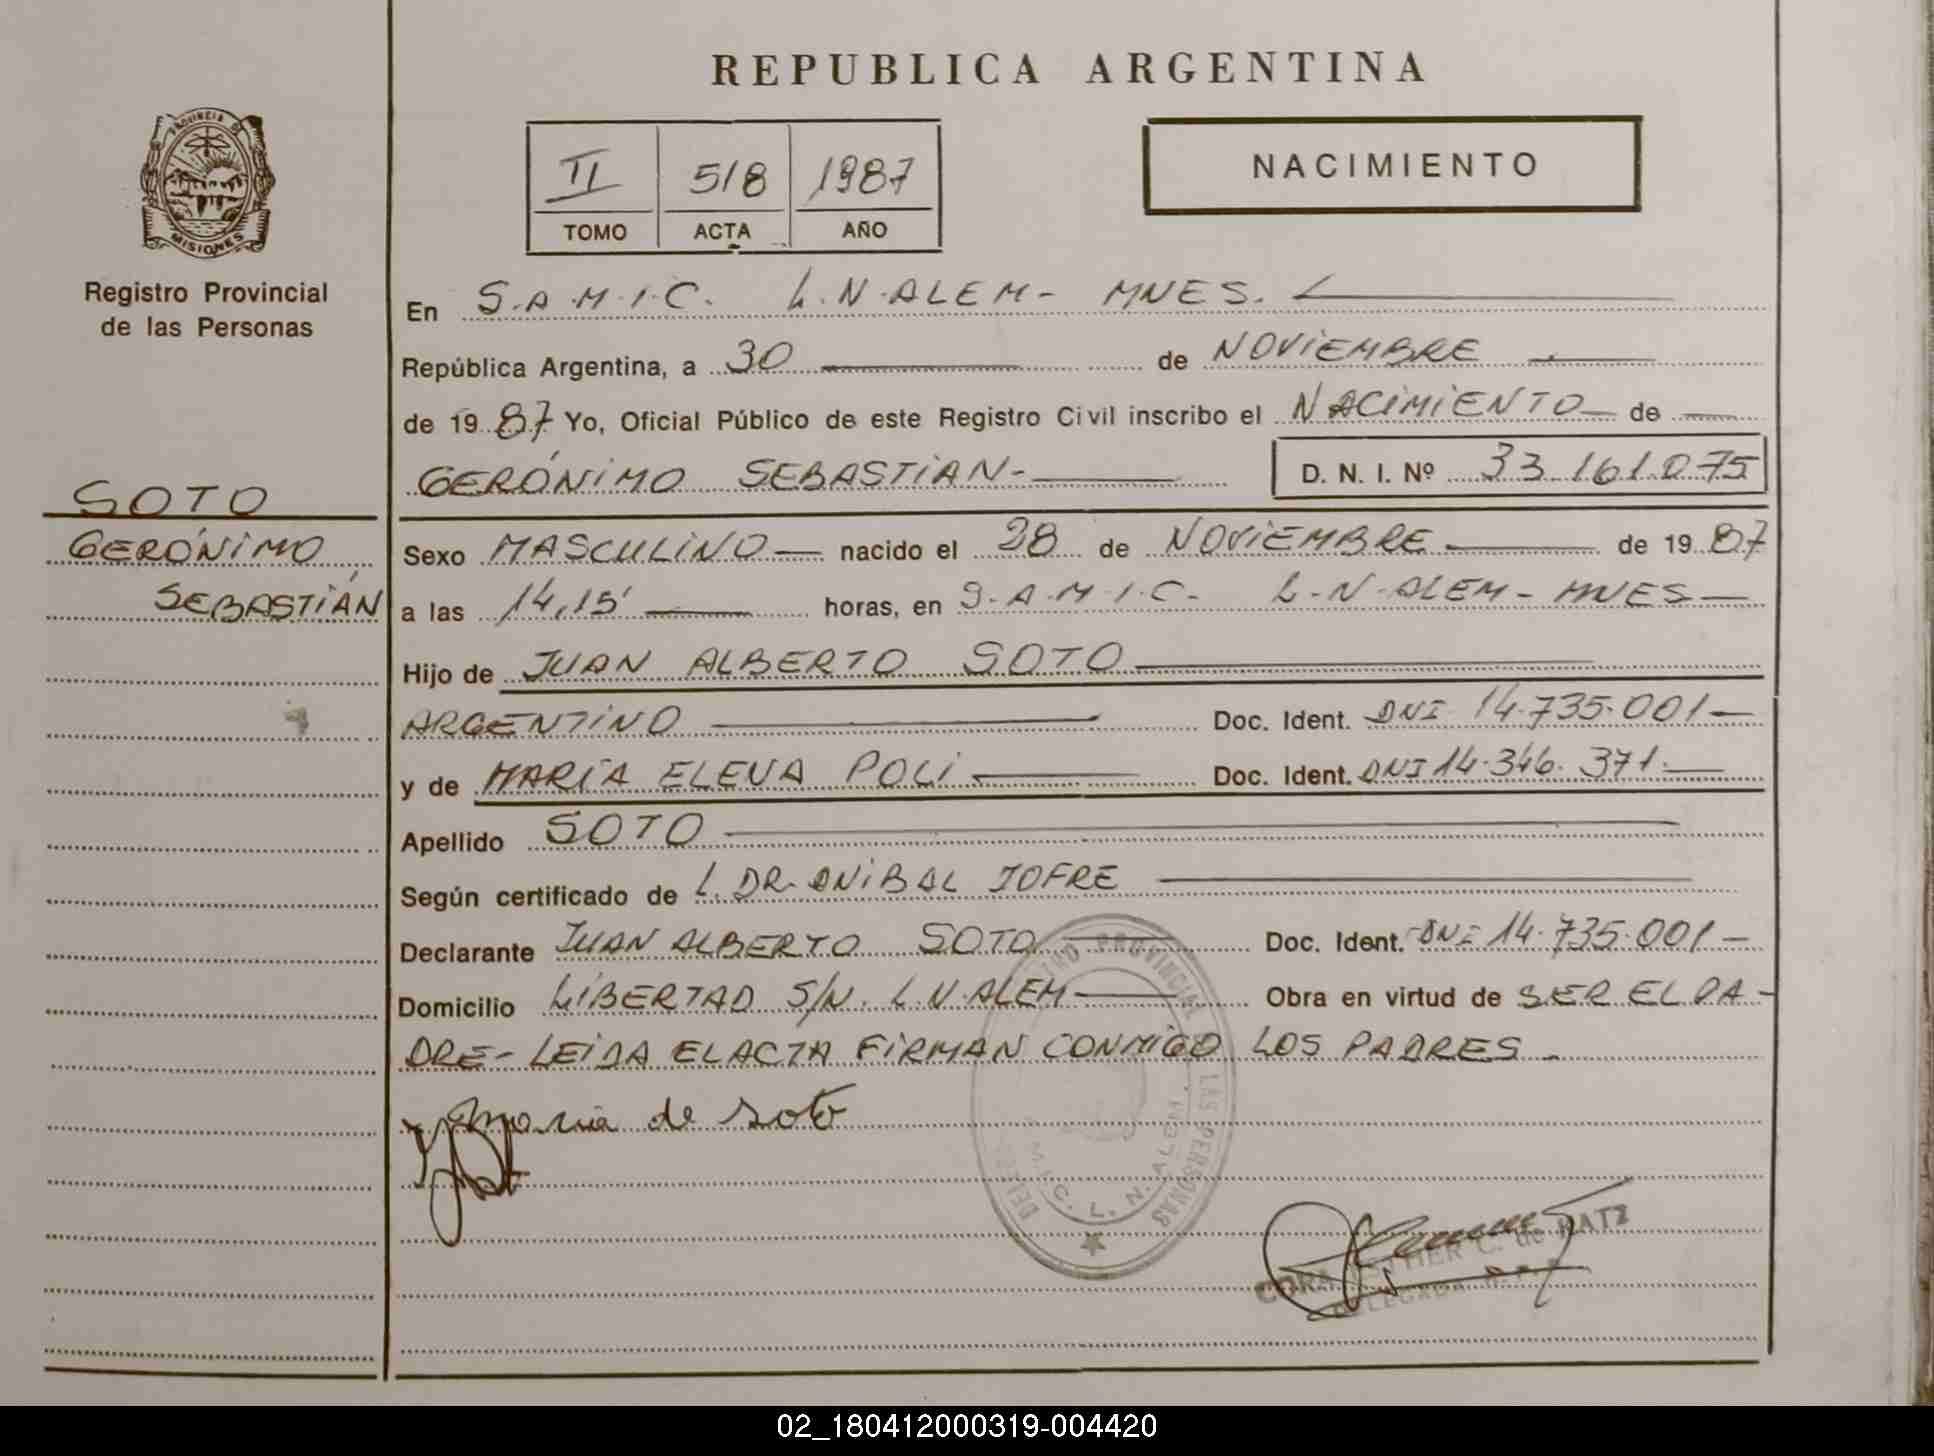 REPUBLICA ARGENTINA
PROVINCIA DE
MISIONES
Registro Provincial
de las Personas
II 518 1987
TOMO ACTA AÑO
NACIMIENTO
En S.A.M.I.C. L.N.ALEM- MNES.
República Argentina, a 30 de NOVIEMBRE
de 1987 Yo, Oficial Público de este Registro Civil inscribo el NACIMIENTO de
GERÓNIMO SEBASTIAN- D. N. I. Nº 33.161.075
SOTO
GERÓNIMO
SEBASTIÁN
Sexo MASCULINO nacido el 28 de NOVIEMBRE de 1987
a las 14,15' horas, en S.A.M.I.C. L.N.ALEM- MNES-
Hijo de JUAN ALBERTO SOTO
ARGENTINO Doc. Ident. DNI 14.735.001-
y de MARÍA ELENA POLI Doc. Ident. DNI 14.346.371.
Apellido SOTO
Según certificado de L. DR. ANIBAL JOFRE
Declarante JUAN ALBERTO SOTO Doc. Ident. DNI 14.735.001-
Domicilio LIBERTAD S/N. L.N.ALEM Obra en virtud de SER EL PA-
DRE- LEIDA EL ACTA FIRMAN CONMIGO LOS PADRES.
Maria de Soto
PROVINCIAL DE LAS PERSONAS
L. N. ALEM.
CORA ESTHER C. de KATZ
DELEGADA
02_180412000319-004420